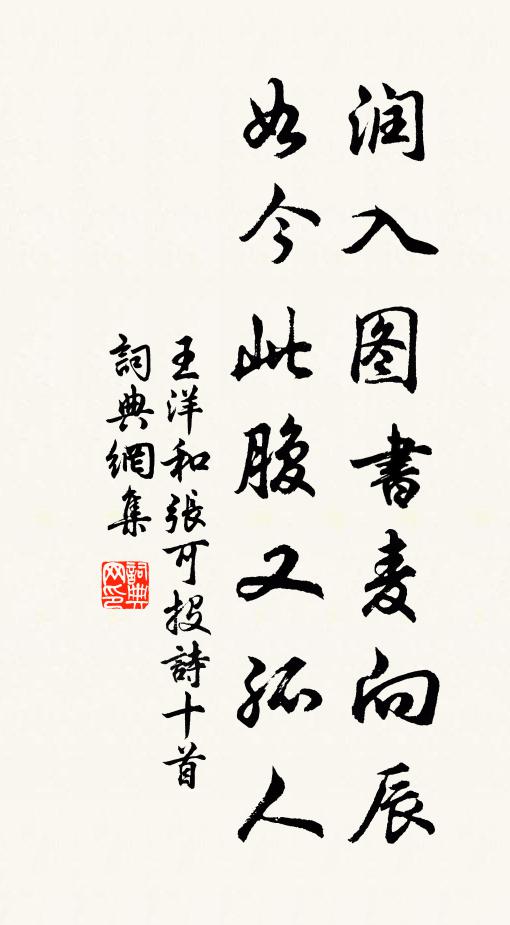 润入图書麦向辰
如今此腹又孤人
王洋和張可投詩十首
詞典網集
詞典网印